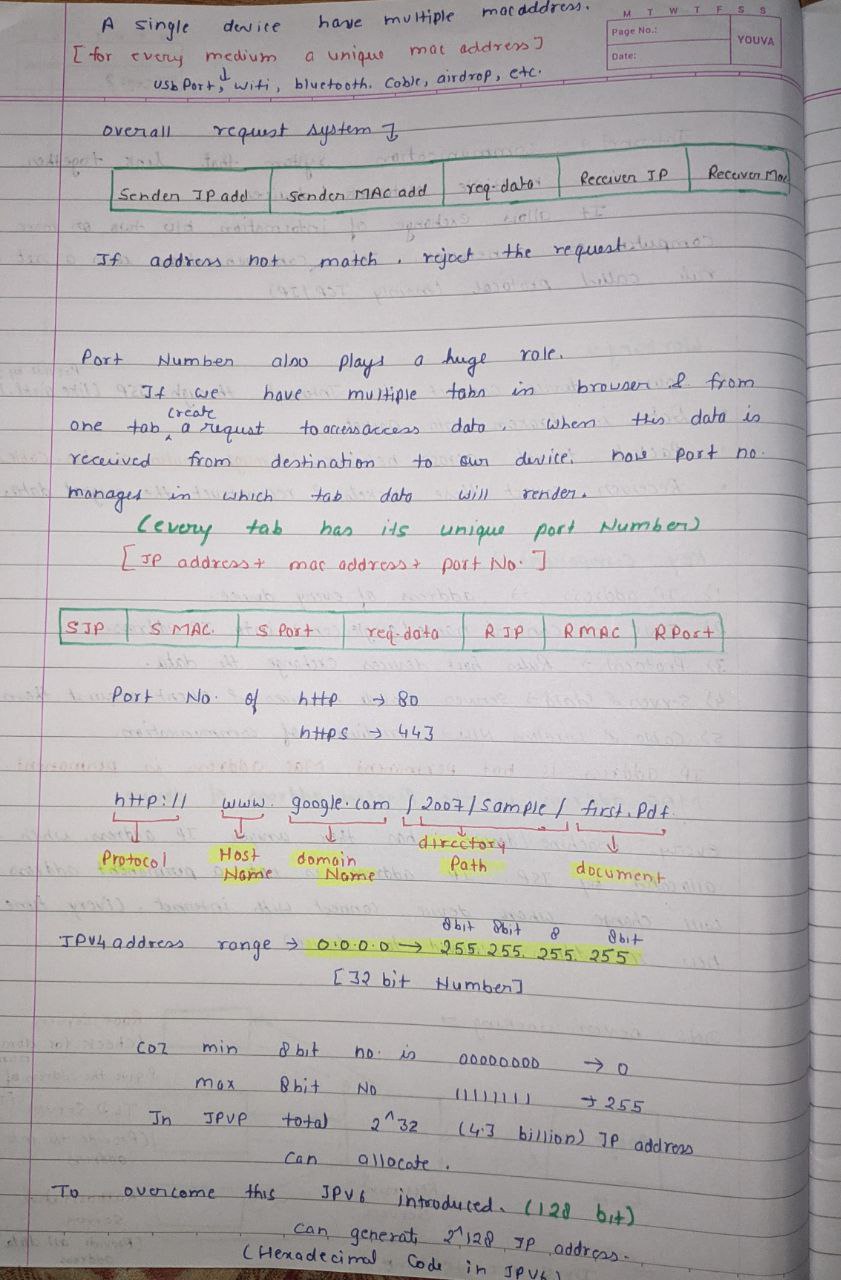 M T W T F S S
Page No.:
YOUVA
Date:
A single device have multiple macaddress.
[for every medium a unique mac address]
usb Port, wifi, bluetooth. Cable, airdrop, etc.
overall request system ↓
Sender IP add | sender MAC add | req. data | Receiver IP | Receiver Mac
If address not match, reject the request.
Port Number also plays a huge role.
If we have multiple tabs in browser & from
create
one tab ^ a request to access access data, when this data is
received from destination to our device. how port no.
manages in which tab data will render.
(every tab has its unique port Number)
[IP address + mac address + port No.]
SIP | S MAC. | S Port | req. data | R IP | RMAC | R Port
Port No. of http → 80
https → 443
http:// www. google.com / 2007 / sample / first. Pdf.
Protocol Host Name domain Name directory Path document
8bit 8bit 8 8bit
IPV4 address range → 0.0.0.0 → 255. 255. 255. 255
[32 bit Number]
coz min 8 bit no. is 00000000 → 0
max 8bit No 11111111 → 255
In IPVP total 2^32 (4.3 billion) IP address
can allocate.
To overcome this IPV6 introduced. (128 bit)
can generate 2^128 IP address.
(Hexadecimal Code in IPV6)